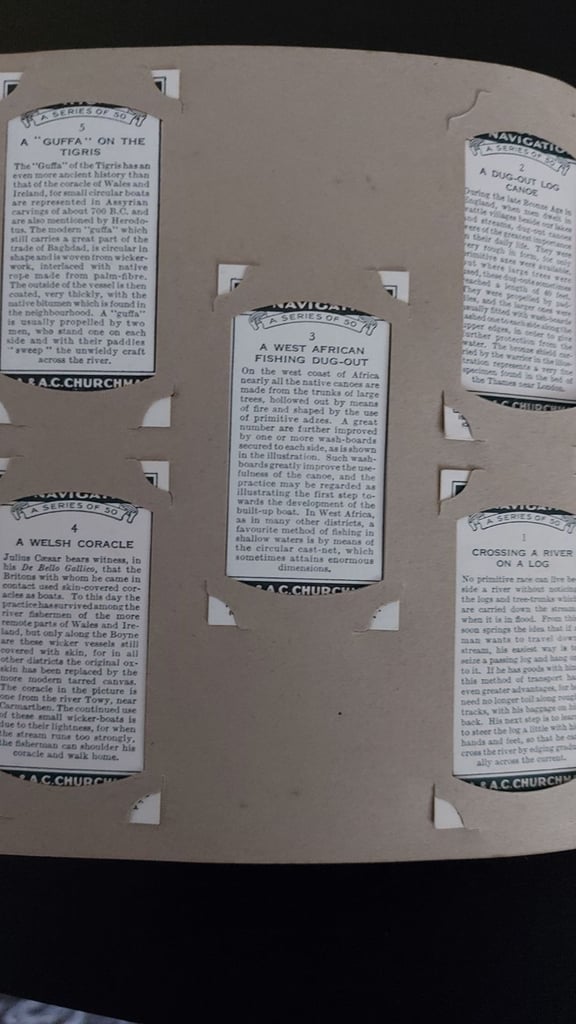 A SERIES OF 50
5
A "GUFFA" ON THE
TIGRIS
The "Guffa" of the Tigris has an
even more ancient history than
that of the coracle of Wales and
Ireland, for small circular boats
are represented in Assyrian
carvings of about 700 B.C. and
are also mentioned by Herodo-
tus. The modern "guffa" which
still carries a great part of the
trade of Baghdad, is circular in
shape and is woven from wicker-
work, interlaced with native
rope made from palm-fibre.
The outside of the vessel is then
coated, very thickly, with the
native bitumen which is found in
the neighbourhood. A "guffa"
is usually propelled by two
men, who stand one on each
side and with their paddles
"sweep" the unwieldy craft
across the river.
& A.C. CHURCHM
NAVIGAT
A SERIES OF 50
4
A WELSH CORACLE
Julius Cæsar bears witness, in
his De Bello Gallico, that the
Britons with whom he came in
contact used skin-covered cor-
acles as boats. To this day the
practice has survived among the
river fishermen of the more
remote parts of Wales and Ire-
land, but only along the Boyne
are these wicker vessels still
covered with skin, for in all
other districts the original ox-
skin has been replaced by the
more modern tarred canvas.
The coracle in the picture is
one from the river Towy, near
Carmarthen. The continued use
of these small wicker-boats is
due to their lightness, for when
the stream runs too strongly,
the fisherman can shoulder his
coracle and walk home.
& A.C. CHURCHM
NAVIGAT
A SERIES OF 50
3
A WEST AFRICAN
FISHING DUG-OUT
On the west coast of Africa
nearly all the native canoes are
made from the trunks of large
trees, hollowed out by means
of fire and shaped by the use
of primitive adzes. A great
number are further improved
by one or more wash-boards
secured to each side, as is shown
in the illustration. Such wash-
boards greatly improve the use-
fulness of the canoe, and the
practice may be regarded as
illustrating the first step to-
wards the development of the
built-up boat. In West Africa,
as in many other districts, a
favourite method of fishing in
shallow waters is by means of
the circular cast-net, which
sometimes attains enormous
dimensions.
& A.C. CHURCH
NAVIGATIO
A SERIES OF 50
2
A DUG-OUT LOG
CANOE
During the late Bronze Age in
England, when men dwelt in
wattle villages beside our lakes
and streams, dug-out canoes
were of the greatest importance
in their daily life. They were
very rough in form, for only
primitive axes were available,
but where large trees were
used, these dug-outs sometimes
reached a length of 40 feet.
They were propelled by pad-
dles, and the larger ones were
usually fitted with wash-boards
lashed one to each side along the
upper edges, in order to give
further protection from the
water. The bronze shield car-
ried by the warrior in the illus-
tration represents a very fine
specimen found in the bed of
the Thames near London.
& A.C. CHURCHM
A SERIES OF 50
1
CROSSING A RIVER
ON A LOG
No primitive race can live be-
side a river without noticing
the logs and tree-trunks which
are carried down the stream
when it is in flood. From this
soon springs the idea that if a
man wants to travel down
stream, his easiest way is to
seize a passing log and hang on
to it. If he has goods with him
this method of transport has
even greater advantages, for he
need no longer toil along rough
tracks, with his baggage on his
back. His next step is to learn
to steer the log a little with his
hands and feet, so that he can
cross the river by edging gradu-
ally across the current.
& A.C. CHURCHM